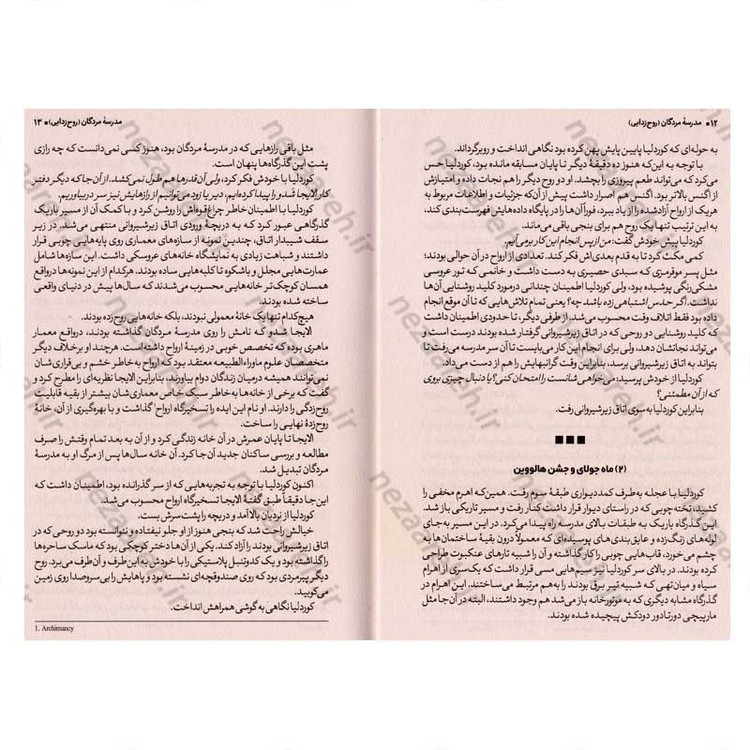 ۱۲ ▪ مدرسهٔ مردگان (روح‌زدایی)
به حوله‌ای که کوردلیا پایین پایش پهن کرده بود نگاهی انداخت و رو برگرداند.
با توجه به این‌که هنوز ده دقیقهٔ دیگر تا پایان مسابقه مانده بود، کوردلیا حس
می‌کرد که می‌تواند طعم پیروزی را بچشد. او دو روح دیگر را هم نجات داده و امتیازش
از اگنس بالاتر بود. اگنس بر اهمیت اصرار داشت پیش از آن‌که جزئیات و اطلاعات مربوط به
هریک از ارواح آزادشده را از یاد ببرد، فوراً آن‌ها را در پایگاه داده‌هایش فهرست‌بندی کند،
به این ترتیب تنها یک روح هم برای بنجی باقی می‌ماند.
کوردلیا پیش خودش گفت: من از پس انجام این کار برمی‌آیم.
کمی مکث کرد تا به قدم بعدی‌اش فکر کند. تعدادی از ارواح در آن حوالی بودند؛
مثل پسر موقرمزی که سبدی حصیری به دست داشت و خانمی که تور عروسی
مشکی‌رنگی پوشیده بود، ولی کوردلیا اطمینان چندانی درمورد کلید روشنایی آن‌ها
نداشت. اگر حدس اشتباهی زده باشد چه؟ یعنی تمام تلاش‌هایی که تا آن موقع انجام
داده بود فقط اتلاف وقت محسوب می‌شد. از طرفی دیگر، تا حدودی اطمینان داشت
که کلید روشنایی دو روحی که در اتاق زیرشیروانی گرفتار شده بودند درست است و
می‌تواند نجاتشان دهد، ولی برای انجام این کار می‌بایست تا آن سر مدرسه می‌رفت تا
بتواند به اتاق زیرشیروانی برسد، بنابراین وقت گرانبهایش را از دست می‌داد.
کوردلیا از خودش پرسید: می‌خواهی شانست را امتحان کنی؟ یا دنبال چیزی بروی
که از آن مطمئنی؟
بنابراین کوردلیا به سوی اتاق زیرشیروانی رفت.
■ ■ ■
(۲) ماه جولای و جشن هالووین
کوردلیا با عجله به‌طرف کمددیواری طبقهٔ سوم رفت. همین‌که اهرم مخفی را
کشید، تخته‌چوبی که در راستای دیوار قرار داشت کنار رفت و مسیر تاریکی باز شد.
این گذرگاه باریک به طبقات بالای مدرسه راه پیدا می‌کرد. در این مسیر به‌جای
لوله‌های زنگ‌زده و عایق‌بندی‌های پوسیده‌ای که معمولاً درون بقیهٔ ساختمان‌ها به
چشم می‌خورد، قاب‌هایی چوبی را کار گذاشته و آن را شبیه تارهای عنکبوت طراحی
کرده بودند. در بالای سر کوردلیا نیز سیم‌هایی مسی قرار داشت که یک‌سری از اهرام
سیاه و میان‌تهی که شبیه تیر برق بودند را به‌هم مرتبط می‌ساختند. این اهرام در
گذرگاه مشابه دیگری که به موتورخانه باز می‌شد هم وجود داشتند، البته در آن‌جا مثل
مارپیچی دورتادور دودکش پیچیده شده بودند.
مدرسهٔ مردگان (روح‌زدایی) ▪ ۱۳
مثل باقی رازهایی که در مدرسهٔ مردگان بود، هنوز کسی نمی‌دانست که چه رازی
پشت این گذرگاه‌ها پنهان است.
کوردلیا با خودش فکر کرد، ولی آن قدرها هم طول نمی‌کشد. از آن‌جا که دیگر دفتر
کار لایجا شد و را پیدا کرده‌ایم، دیر یا زود می‌توانیم از رازهایش نیز سر دربیاوریم.
کوردلیا با اطمینان خاطر چراغ‌قوه‌اش را روشن کرد و با کمک آن از مسیر باریک
گذرگاهی عبور کرد که به دریچهٔ ورودی اتاق زیرشیروانی منتهی می‌شد. در زیر
سقف شیبدار اتاق، چندین نمونه از سازه‌های معماری روی پایه‌هایی چوبی قرار
داشتند و شباهت زیادی به نمایشگاه خانه‌های عروسکی داشت. این سازه‌ها شامل
عمارت‌هایی مجلل و باشکوه تا کلبه‌هایی ساده بودند. هرکدام از این نمونه‌ها درواقع
همسان کوچک‌تر خانه‌هایی محسوب می‌شدند که سال‌ها پیش در دنیای واقعی
ساخته شده بودند.
هیچ‌کدام تنها یک خانهٔ معمولی نبودند، بلکه خانه‌هایی روح‌زده بودند.
الایجا شدو که نامش را روی مدرسهٔ مردگان گذاشته بودند، درواقع معمار
ماهری بوده که تخصص خوبی در زمینهٔ ارواح داشته است. هرچند او برخلاف دیگر
متخصصان علوم ماوراءالطبیعه معتقد بود که ارواح به‌خاطر خشم و بی‌قراری‌شان
نمی‌توانند همیشه درمیان زندگان دوام بیاورند، بنابراین الایجا نظریه‌ای را مطرح کرد و
گفت که برخی از خانه‌ها به‌خاطر سبک خاص معماری‌شان بیشتر از بقیه قابلیت
روح‌زدگی را دارند. او نام این ایده را تسخیرگاه ارواح¹ گذاشت و با بهره‌گیری از آن، خانهٔ
روح‌زدهٔ نهایی را ساخت.
الایجا تا پایان عمرش در آن خانه زندگی کرد و از آن به بعد تمام وقتش را صرف
مطالعه و بررسی ساکنان جدید آن‌جا کرد. آن خانه سال‌ها پس از مرگ او به مدرسهٔ
مردگان تبدیل شد.
اکنون کوردلیا با توجه به تجربه‌هایی که از سر گذرانده بود، اطمینان داشت که
این‌جا دقیقاً طبق گفتهٔ الایجا تسخیرگاه ارواح محسوب می‌شد.
کوردلیا از نردبان بالا آمد و دریچه را پشت‌سرش بست.
خیالش راحت شد که بنجی هنوز از او جلو نیفتاده و نتوانسته بود دو روحی که در
اتاق زیرشیروانی بودند را آزاد کند. یکی از آن‌ها دختر کوچکی بود که ماسک ساحره‌ها
را گذاشته بود و یک کدوتنبل پلاستیکی را با خودش به این‌طرف و آن‌طرف می‌برد. روح
دیگر پیرمردی بود که روی صندوقچه‌ای نشسته بود و پاهایش را بی‌سروصدا روی زمین
می‌کوبید.
کوردلیا نگاهی به گوشی همراهش انداخت.
1. Archimancy
nezaareh.ir